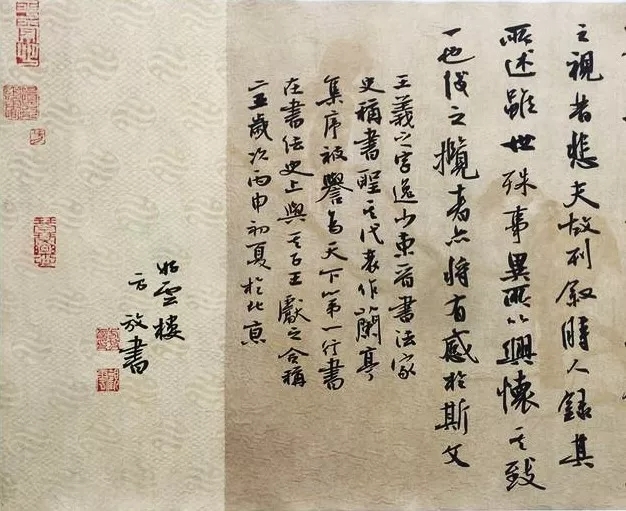 之視昔悲夫故列叙時人錄其
所述雖世殊事異所以興懷其致
一也後之攬者亦將有感於斯文
王羲之字逸少東晉書法家
史稱書聖其代表作蘭亭
集序被譽為天下第一行書
在書法史上與其子王獻之合稱
二王歲次丙申初夏於北京
雲樓
方放書